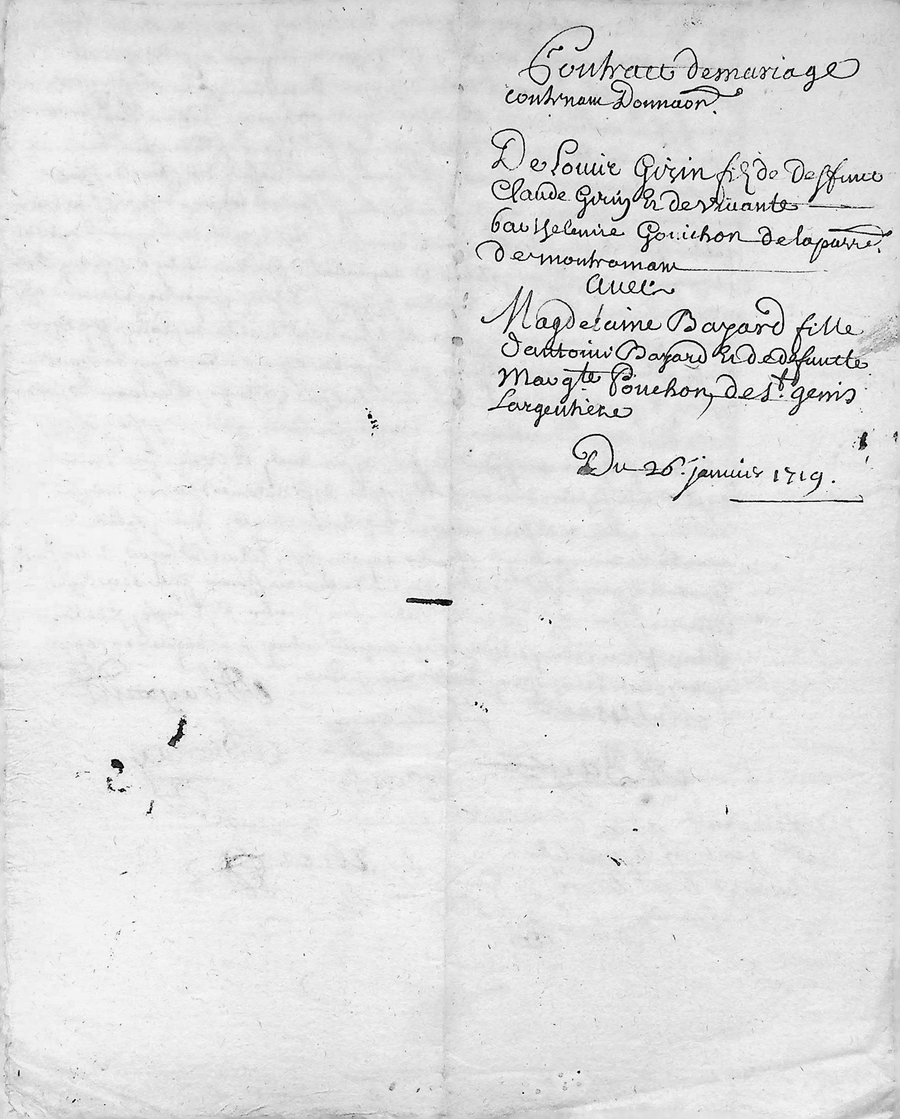 Contract de mariage
contenant Donnaon
De Louis Girin filz de deffunct
Claude Girin Et de vivante
barthelemie Gouchon de la parre.
de montromant
avec
Magdelaine Bayard fille
d'antoine Bayard Et de defuncte
Margte Pouchon, de st. genis
Largentière
Du 26. janvier 1719.